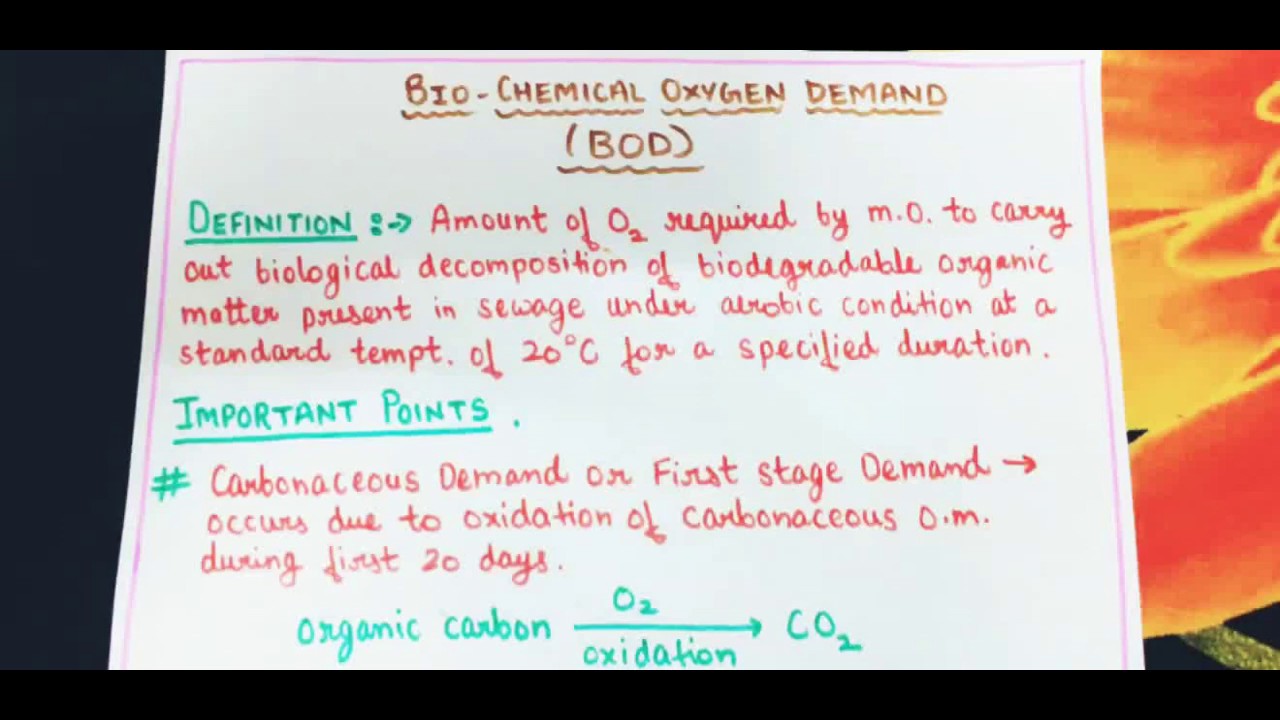 BIO-CHEMICAL OXYGEN DEMAND
(BOD)
DEFINITION :→ Amount of O₂ required by m.O. to carry
out biological decomposition of biodegradable organic
matter present in sewage under aerobic condition at a
standard tempt. of 20°C for a specified duration.
IMPORTANT POINTS.
# Carbonaceous Demand or First stage Demand →
occurs due to oxidation of carbonaceous O.m.
during first 20 days.
organic carbon O₂ → CO₂
oxidation